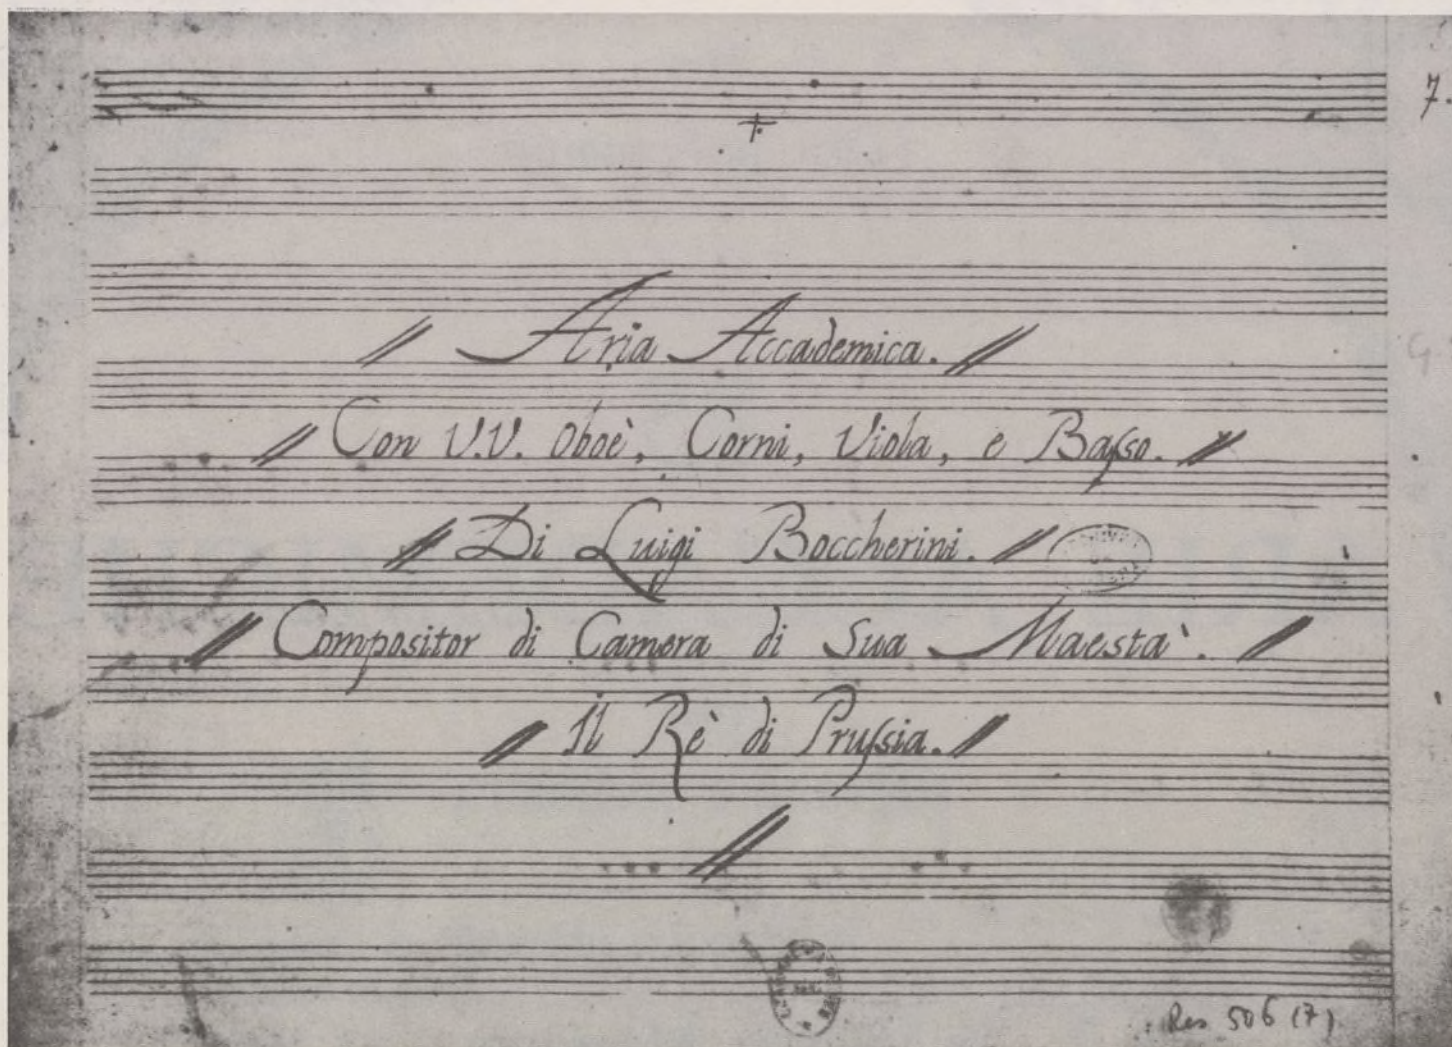 7.
// Aria Accademica. //
// Con V.V. Oboè, Corni, Viola, e Baſso. //
// Di Luigi Boccherini. //
// Compositor di Camera di Sua Maestà. //
// Il Rè di Pruſsia. //
//
Res 506 (7)